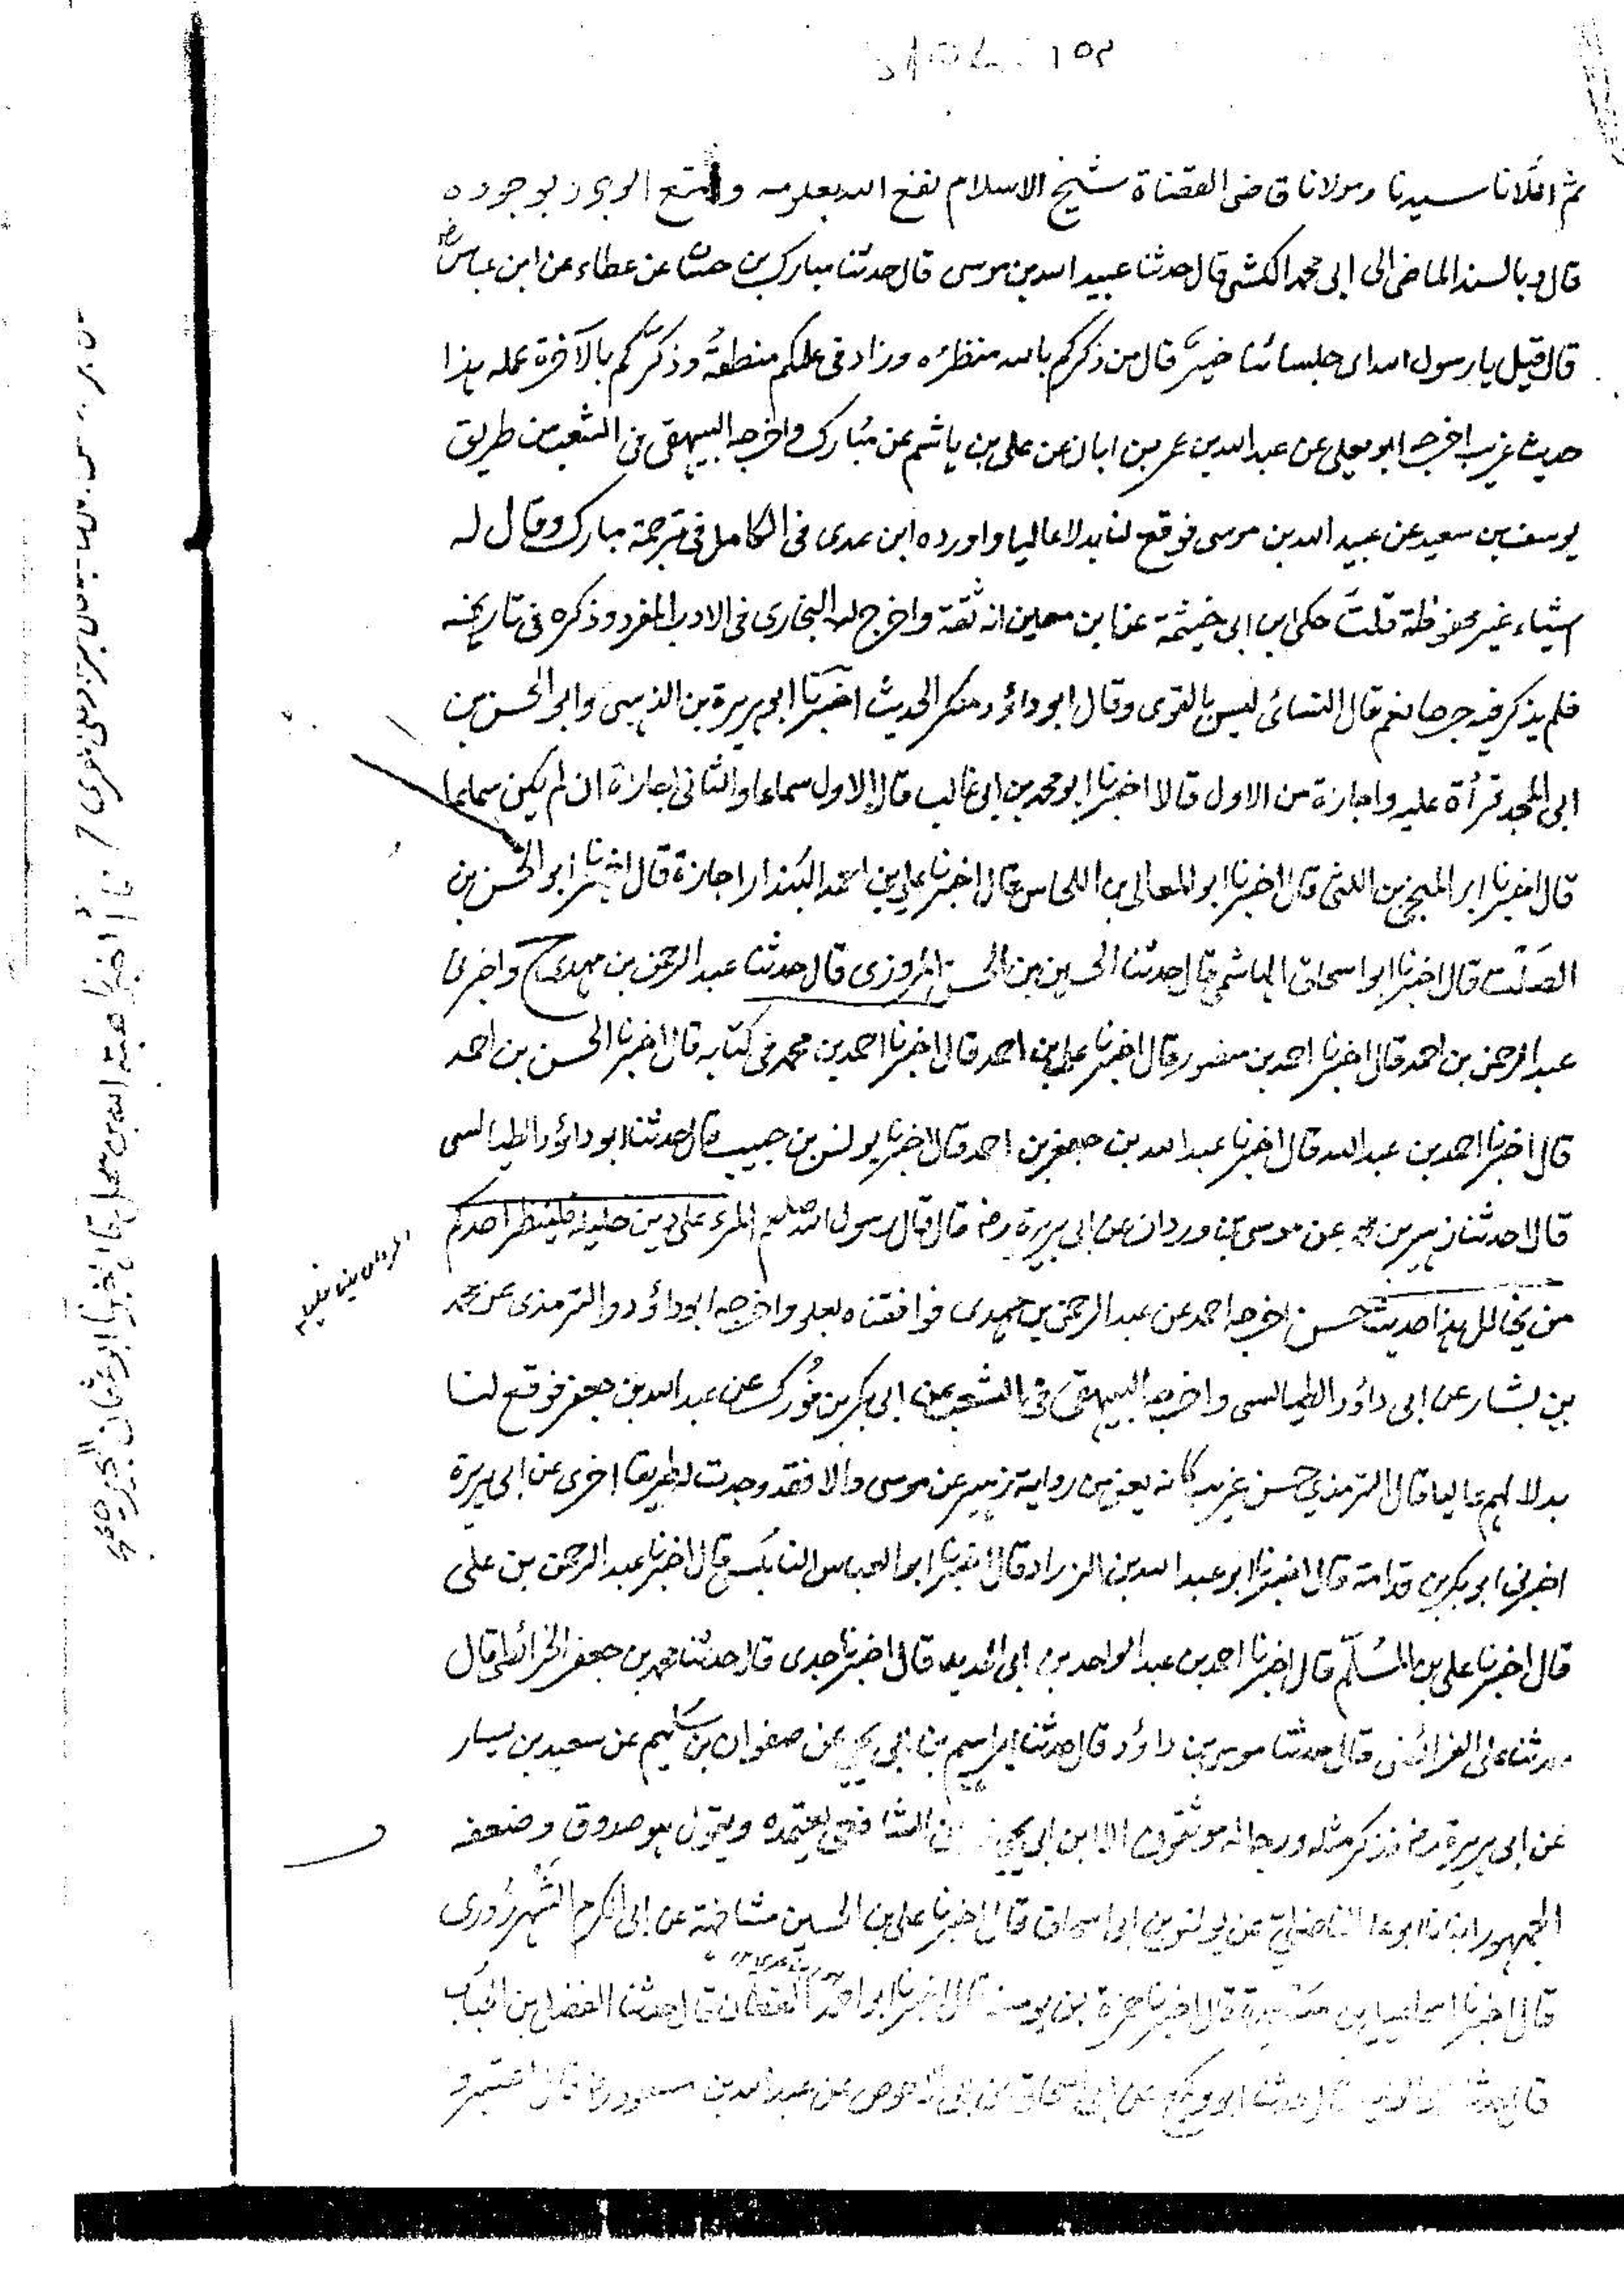 ثم املانا سيدنا ومولانا قاضى القضاة شيخ الاسلام نفع الله بعلومه وامتع الوجود بوجوده
قال وبالسند الماضى الى ابى محمد الكشى قال حدثنا عبيد الله بن موسى قال حدثنا مبارك بن حسان عن عطاء عن ابن عباس رض
قال قيل يا رسول الله اى جلسائنا خير قال من ذكركم بالله منظره وزاد فى علمكم منطقه وذكركم بالآخرة عمله هذا
حديث غريب اخرجه ابو يعلى عن عبد الله بن عمر بن ابان عن على بن هاشم عن مبارك واخرجه البيهقى فى الشعب من طريق
يوسف بن سعيد عن عبيد الله بن موسى فوقع لنا بدلا عاليا واورده ابن عدى فى الكامل فى ترجمة مبارك وقال له
اشياء غير محفوظة قلت حكى ابن ابى خيثمة عن ابن معين انه ثقة واخرج له البخارى فى الادب المفرد وذكره فى تاريخه
فلم يذكر فيه جرحا نعم قال النسائى ليس بالقوى وقال ابو داؤد منكر الحديث اخبرنا ابو هريرة بن الذهبى وابو الحسن بن
ابى المجد قرأة عليه واجازة من الاول قالا اخبرنا ابو محمد بن ابى غالب قال الاول سماعا والثانى اجازة ان لم يكن سماعا
قال اخبرنا ابو المنجى بن اللتى قال اخبرنا ابو المعالى بن اللحاس قال اخبرنا على بن احمد البندار اجازة قال اخبرنا ابو الحسن بن
الصلت قال اخبرنا ابو اسحاق الهاشمى قال حدثنا الحسين بن الحسن المروزى قال حدثنا عبد الرحمن بن مهدى ح واخبرنا
عبد الرحمن بن احمد قال اخبرنا احمد بن منصور قال اخبرنا على بن احمد قال اخبرنا احمد بن محمد فى كتابه قال اخبرنا الحسن بن احمد
قال اخبرنا احمد بن عبد الله قال اخبرنا عبد الله بن جعفر بن احمد قال اخبرنا يونس بن حبيب قال حدثنا ابو داؤد الطيالسى
قالا حدثنا زهير بن محمد عن موسى بن وردان عن ابى هريرة رضـ قال قال رسول الله صلعم المرء على دين خليله فلينظر احدكم
من يخالل هذا حديث حسن اخرجه احمد عن عبد الرحمن بن مهدى فوافقناه بعلو واخرجه ابو داؤد والترمذى عن محمد
بن بشار عن ابى داؤد الطيالسى واخرجه البيهقى فى الشعب عن ابى بكر بن فورك عن عبد الله بن جعفر فوقع لنا
بدلا لهم عاليا قال الترمذى حسن غريب كانه يعنى من رواية زهير عن موسى والا فقد وجدت له طريقا اخرى عن ابى هريرة
اخبرنى ابو بكر بن قدامة قال اخبرنا ابو عبد الله بن الزراد قال اخبرنا ابو العباس النابلسى قال اخبرنا عبد الرحمن بن على
قال اخبرنا على بن المسلم قال اخبرنا احمد بن عبد الواحد بن ابى الحديد قال اخبرنا جدى قال حدثنا محمد بن جعفر الخرائطى قال
حدثنا على الفرائضى قال حدثنا موسى بن داؤد قال حدثنا ابراهيم بن ابى يحيى عن صفوان بن سليم عن سعيد بن يسار
عن ابى هريرة رضـ فذكر مثله ورجاله موثقون الا ابن ابى يحيى الشافعى يعتمده ويقول هو صدوق وضعفه
الجمهور انبانا ابو على الفاضلى عن يونس بن ابى اسحاق قال اخبرنا على بن الحسين مشافهة عن ابى الكرم الشهرزورى
قال اخبرنا اسماعيل بن مسعدة قال اخبرنا حمزة بن يوسف قال اخبرنا ابو احمد القطان قال حدثنا الفضل بن الحباب
قال حدثنا قال حدثنا ابو وكيع عن ابى اسحاق عن ابى الاحوص عن عبد الله بن مسعود رضـ قال اعتبروا
اخبرنا هبة الله بن سهل قال اخبرنا ابو عثمان البحيرى